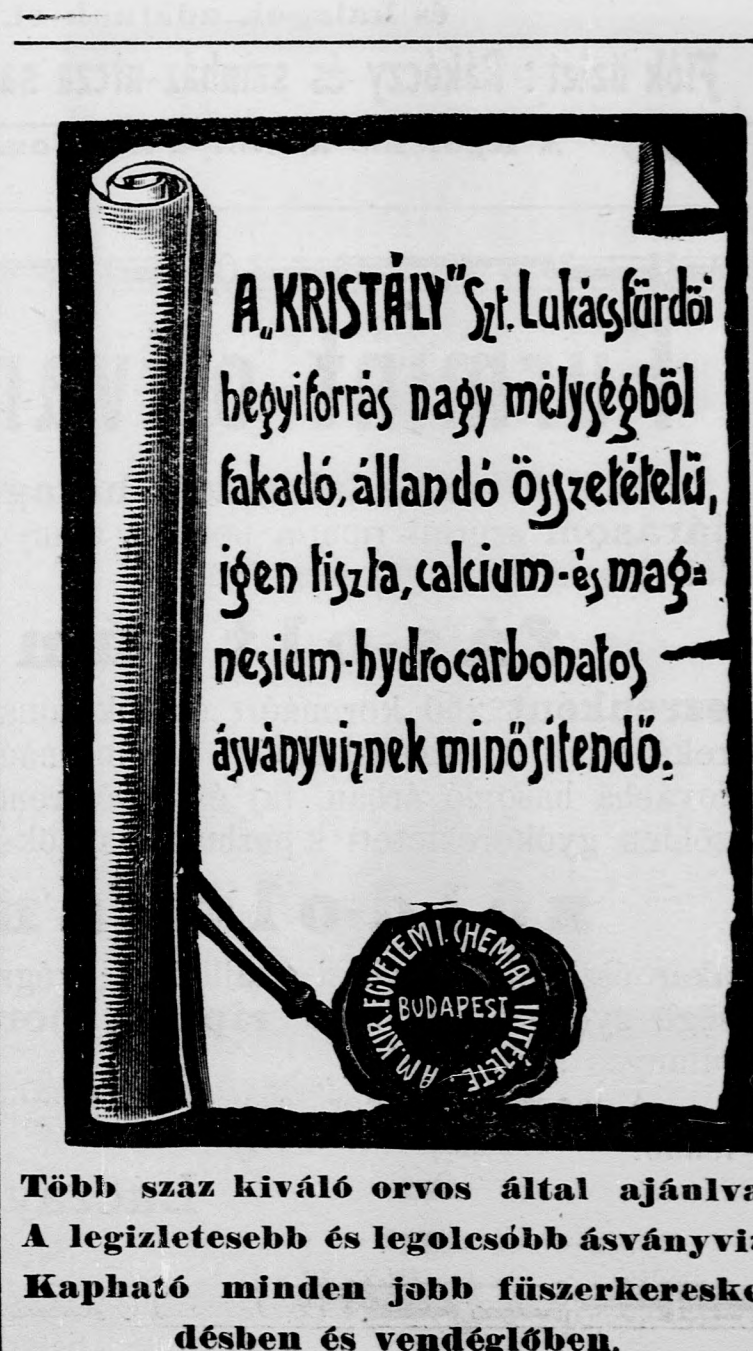 A „KRISTÁLY" Szt. Lukácsfürdői
hegyiforrás nagy mélységből
fakadó, állandó összetételű,
igen tiszta, calcium- és mag=
nesium-hydrocarbonatos
ásványviznek minősítendő.
A M. KIR. EGYETEMI I. CHEMIAI INTÉZETE.
BUDAPEST
Több szaz kiváló orvos által ajánlva
A legizletesebb és legolcsóbb ásványviz
Kapható minden jobb füszerkereske
désben és vendéglőben.